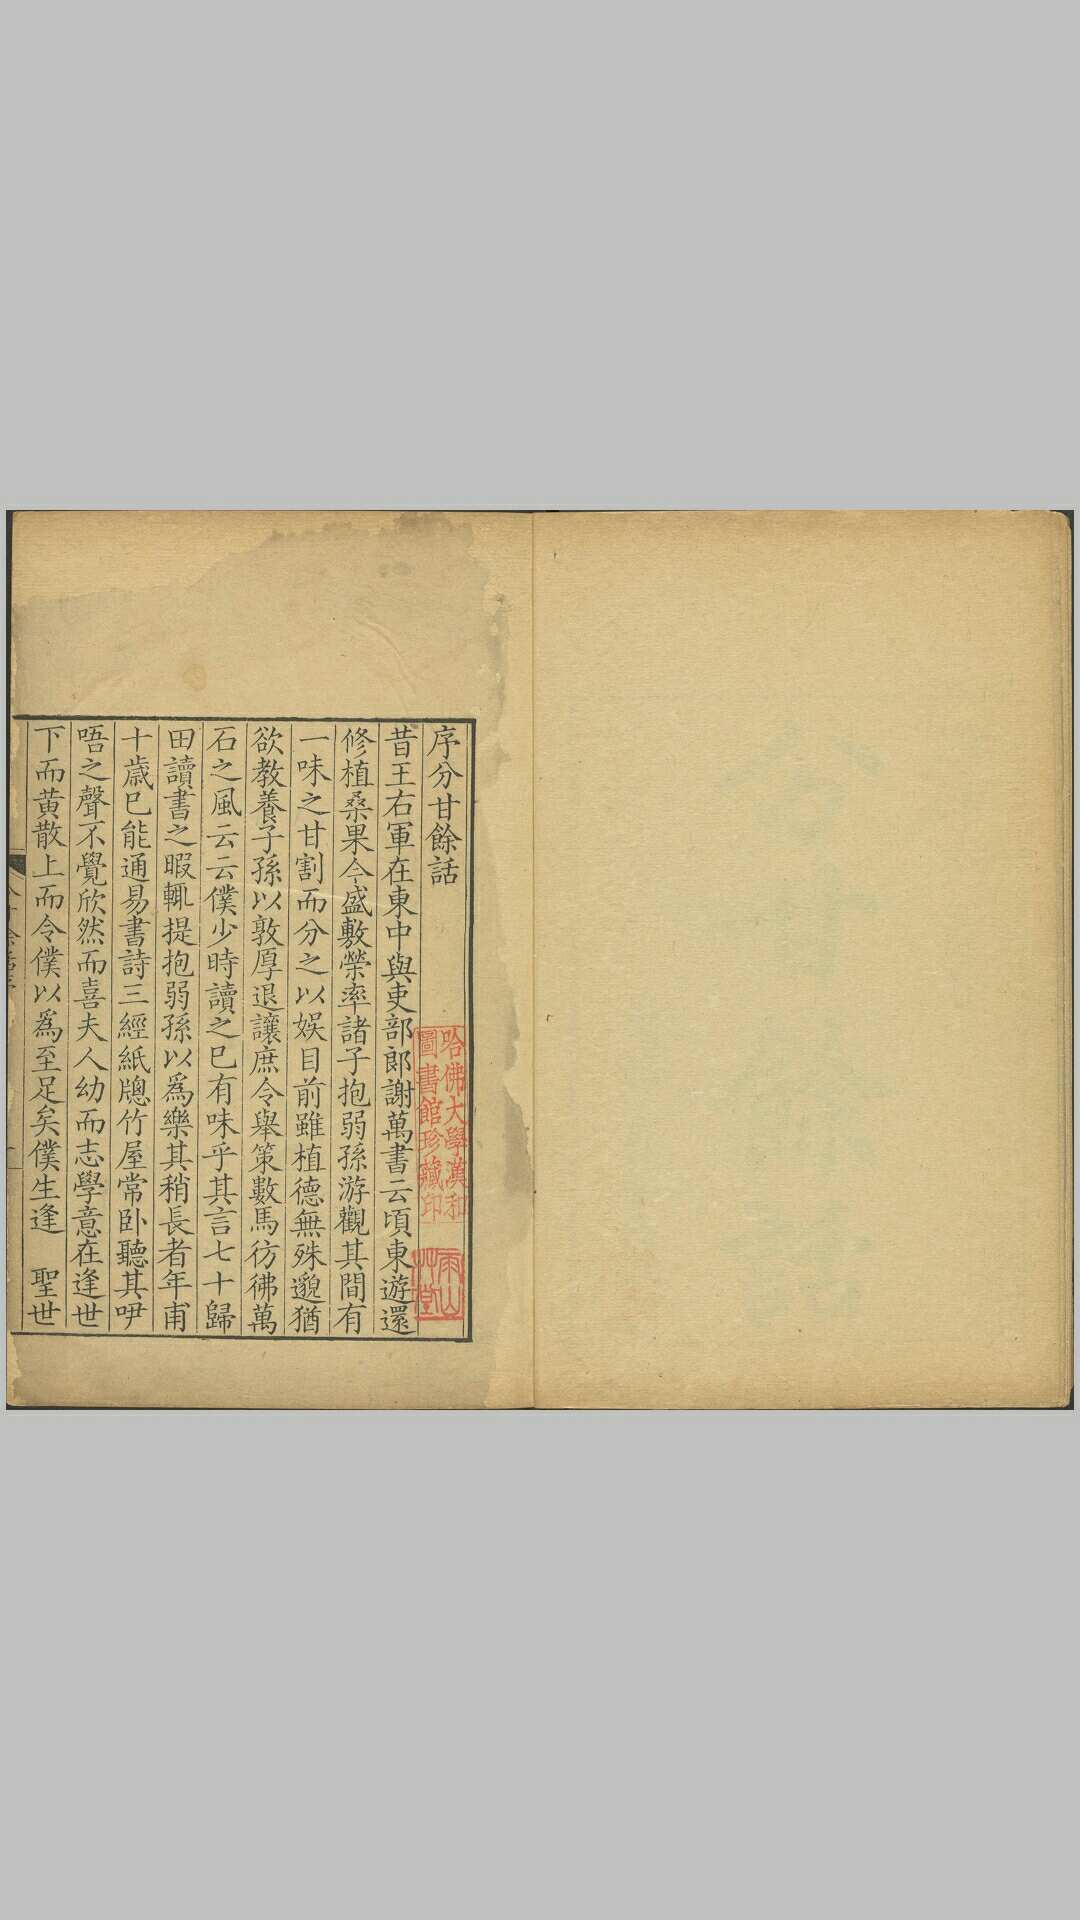 序分甘餘話
昔王右軍在東中與吏部郎謝萬書云頃東遊還
修植桑果今盛敷榮率諸子抱弱孫游觀其間有
一味之甘割而分之以娛目前雖植德無殊邈猶
欲教養子孫以敦厚退讓庶令舉策數馬彷彿萬
石之風云云僕少時讀之已有味乎其言七十歸
田讀書之暇輒提抱弱孫以爲樂其稍長者年甫
十歲已能通易書詩三經紙牕竹屋常卧聽其咿
唔之聲不覺欣然而喜夫人幼而志學意在逢世
下而黄散上而令僕以爲至足矣僕生逢　聖世
哈佛大學漢和
圖書館珍藏印
雨山
艸堂